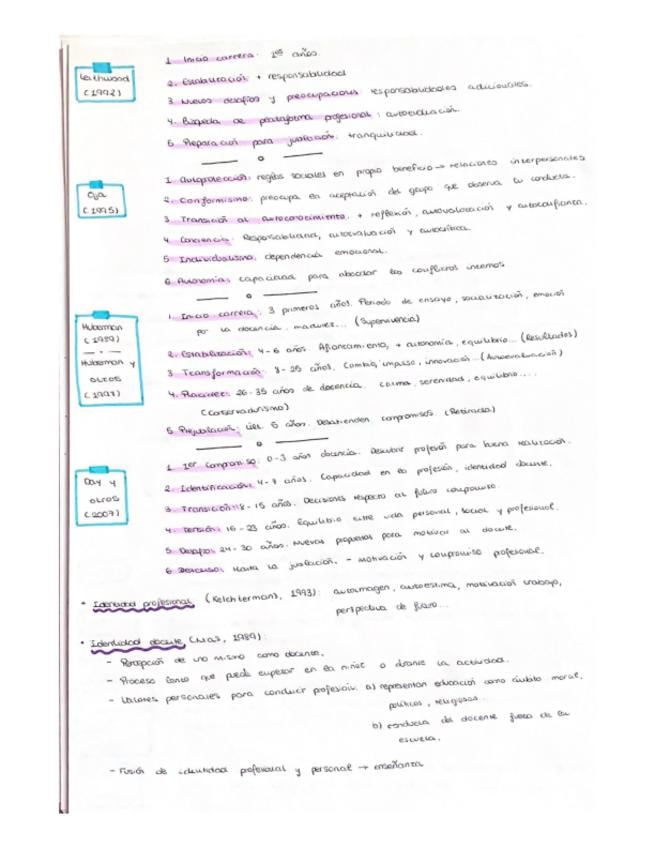 Leithwood
(1992)
1. Inicio carrera: 1os años.
2. Estabilización: + responsabilidad
3. Nuevos desafíos y preocupaciones: responsabilidades adicionales.
4. Búsqueda de plataforma profesional: autoevaluación.
5. Preparación para jubilación: tranquilidad.
Oja
(1995)
1. Autoprotección: reglas sociales en propio beneficio → relaciones interpersonales
2. Conformismo: preocupa la aceptación del grupo que observa tu conducta.
3. Transición al autoconocimiento: + reflexión, autovaloración y autoconfianza.
4. Conciencia: Responsabilidad, autoevaluación y autocrítica.
5. Individualismo: dependencia emocional.
6. Autonomía: capacidad para abordar los conflictos internos
Huberman
(1989)
Huberman y
otros
1. Inicio carrera: 3 primeros años. Periodo de ensayo, socialización, emoción
por la docencia, madurez... (Supervivencia)
2. Estabilización: 4-6 años. Afianzamiento, + autonomía, equilibrio... (Resultados)
3. Transformación: 8-25 años. Cambio, impulso, innovación... (Autoevaluación)
4. 26-35 años de docencia. Calma, serenidad, equilibrio....
(Conservadurismo)
5. Prejubilación: últ. 5 años. Desatienden compromisos. (Retirada)
Day y
otros
(2007)
1. 1er Compromiso: 0-3 años docencia. Descubrir profesión para buena realización.
2. Identificación: 4-7 años. Capacidad en la profesión, identidad docente.
3. Transición: 8-15 años. Decisiones respecto al futuro compromiso.
4. Tensión: 16-23 años. Equilibrio entre vida personal, social y profesional.
5. Desafío: 24-30 años. Nuevas propuestas para motivar al docente.
6. Descenso: Hasta la jubilación. - motivación y compromiso profesional.
• Identidad profesional (Kelchtermans, 1993): autoimagen, autoestima, motivación trabajo,
perspectiva de futuro...
• Identidad docente (Nias, 1989):
- Percepción de uno mismo como docente.
- Proceso largo que puede empezar en la niñez o durante la actividad.
- Valores personales para conducir profesión: a) representan educación como ámbito moral,
políticos, religiosos...
b) conducta del docente fuera de la
escuela.
- Fusión de identidad profesional y personal → enseñanza